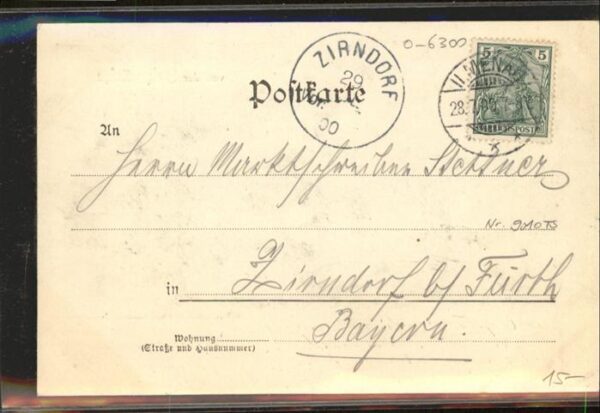 0-6300
5 5
ZIRNDORF
29
00
ILMENAU
28.7.
REICHSPOST
Postkarte
An
Herrn Marktschreiber
Nr. 9010TS
in Zirndorf b/ Fürth
Bayern.
Wohnung
(Straße und Hausnummer)
15-